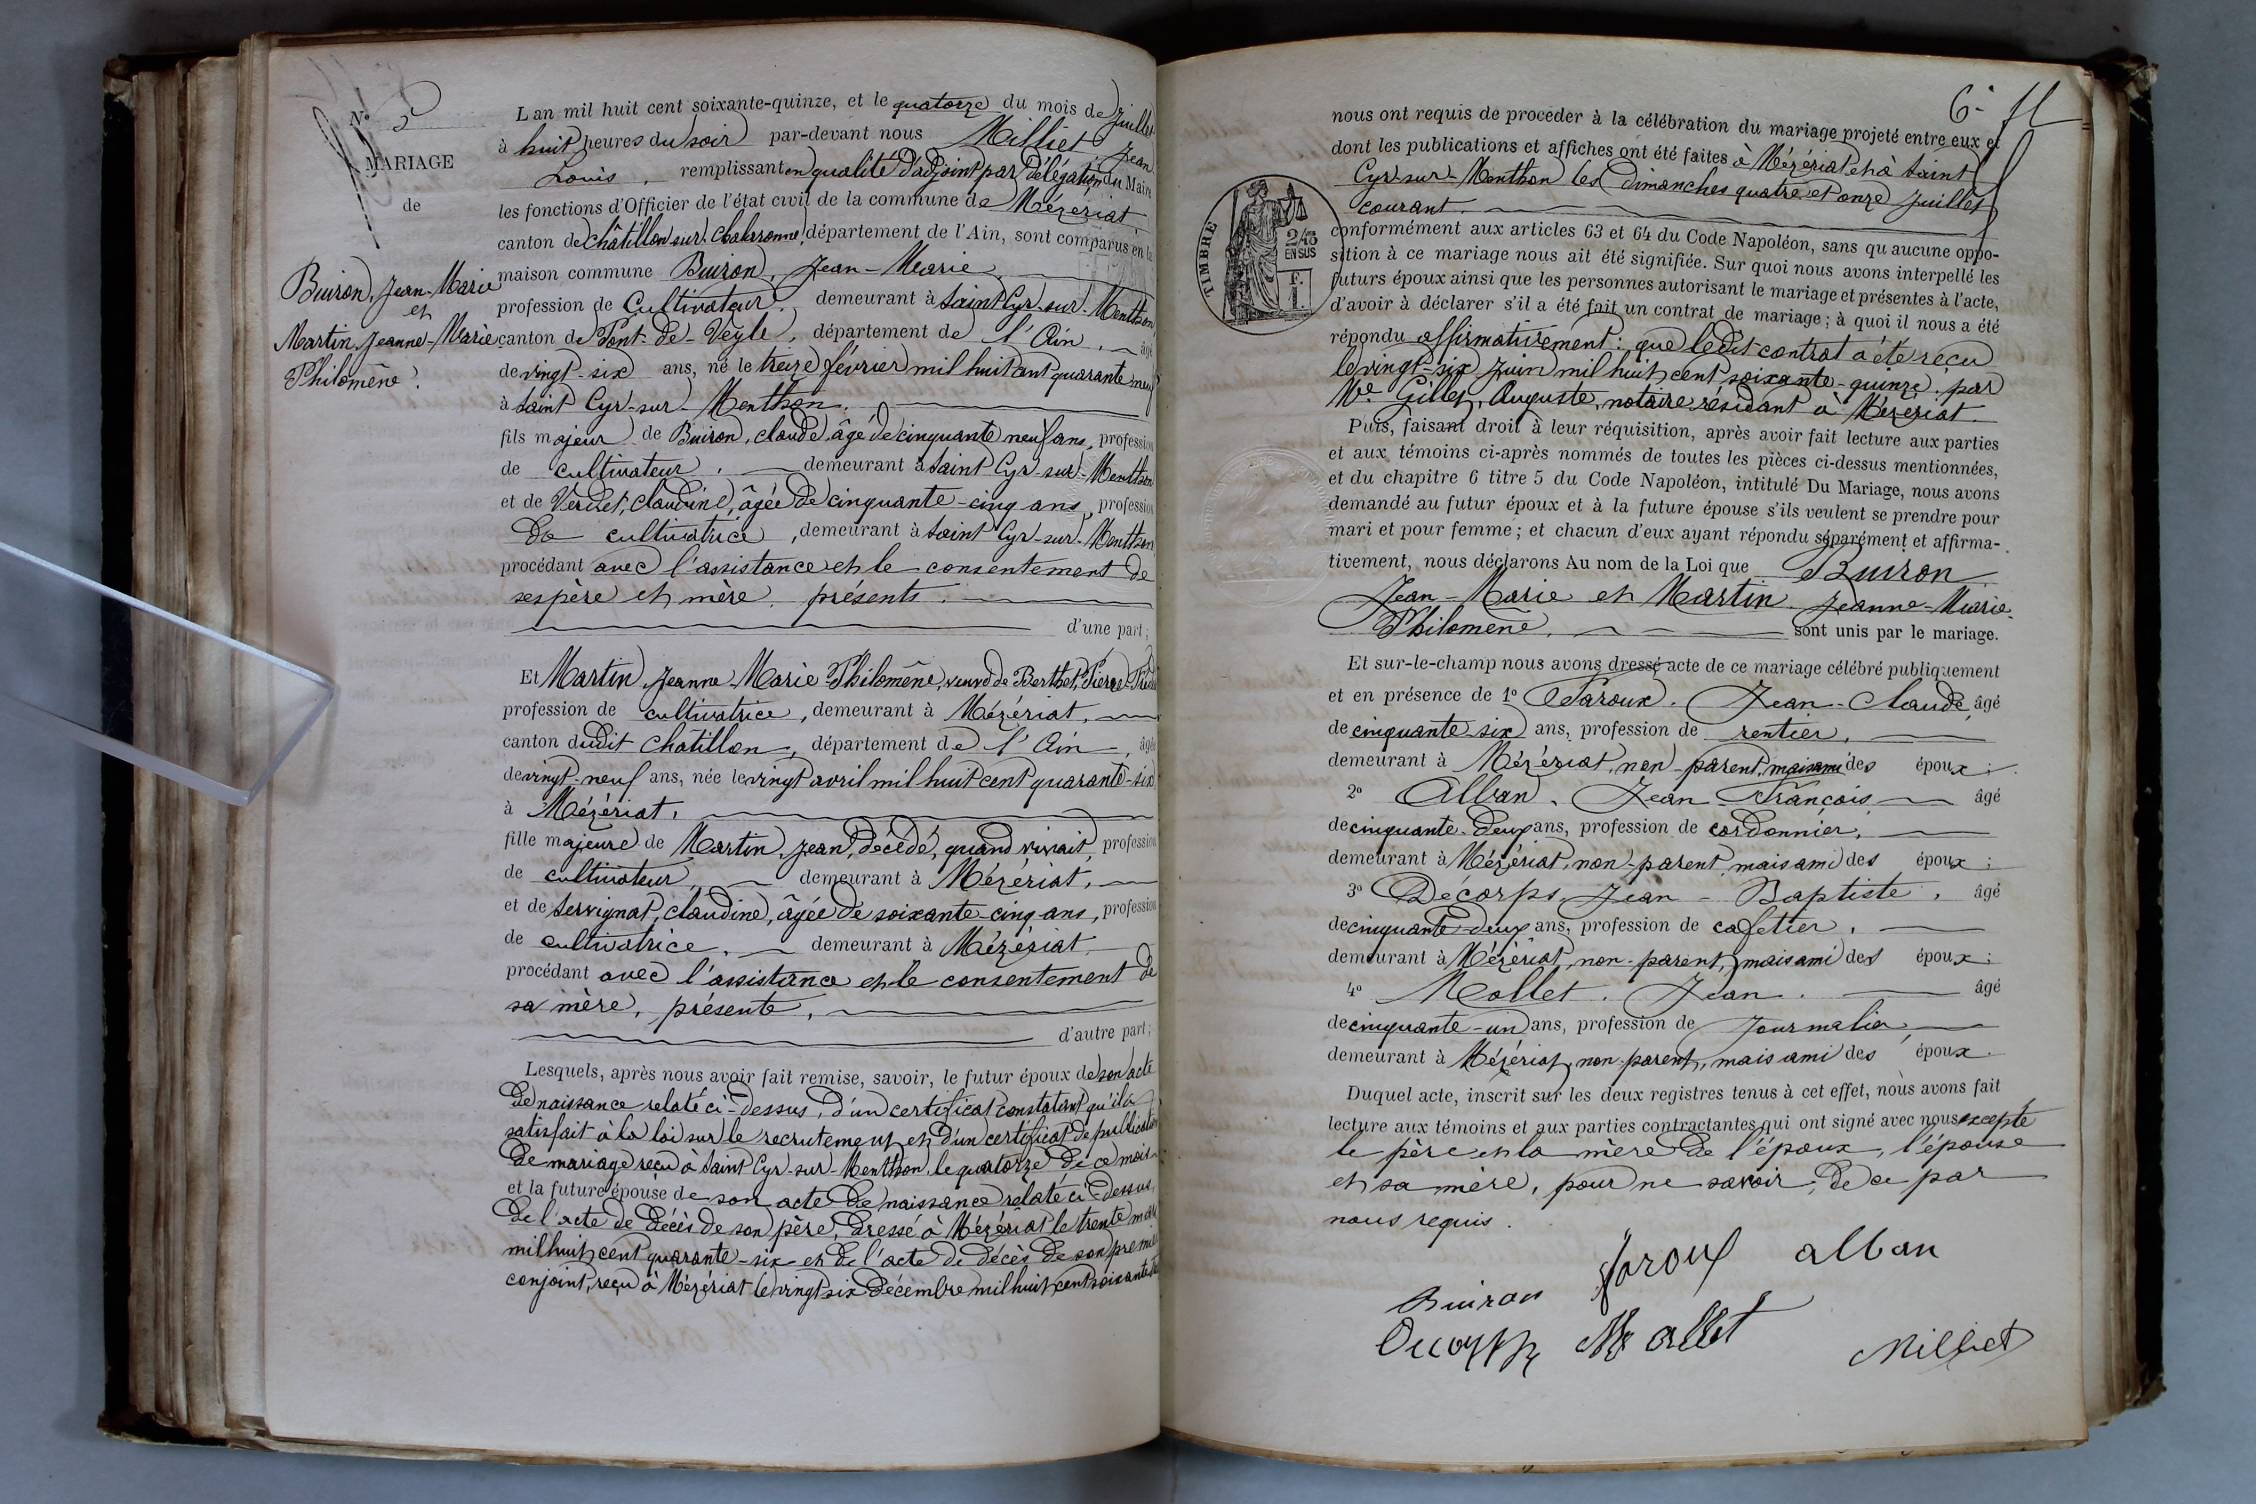 N° 5
MARIAGE
de
Buiron, Jean-Marie
et
Martin, Jeanne-Marie
Philomène.
L'an mil huit cent soixante-quinze, et le quatorze du mois de Juillet
à huit heures du soir par-devant nous Milliet, Jean
Louis, remplissant en qualité d'adjoint par délégation du Maire
les fonctions d'Officier de l'état civil de la commune de Mézériat
canton de Châtillon sur Chalaronne, département de l'Ain, sont comparus en la
maison commune Buiron, Jean-Marie
profession de Cultivateur, demeurant à Saint Cyr-sur-Menthon,
canton de Pont-de-Veyle, département de l'Ain, âgé
de vingt-six ans, né le treize février mil huit cent quarante neuf
à Saint Cyr-sur-Menthon.
fils majeur de Buiron, Claude, âgé de cinquante neuf ans, profession
de cultivateur, demeurant à Saint Cyr-sur-Menthon
et de Verdet, Claudine, âgée de cinquante-cinq ans, profession
de cultivatrice, demeurant à Saint Cyr-sur-Menthon
procédant avec l'assistance et le consentement de
ses père et mère, présents.
d'une part;
Et Martin, Jeanne-Marie-Philomène, veuve de Berthet, Pierre
profession de cultivatrice, demeurant à Mézériat,
canton dudit Chatillon, département de l'Ain, âgée
de vingt-neuf ans, née le vingt avril mil huit cent quarante-six
à Mézériat,
fille majeure de Martin, Jean, décédé, quand vivait, profession
de cultivateur, demeurant à Mézériat,
et de Servignat, Claudine, âgée de soixante-cinq ans, profession
de cultivatrice, demeurant à Mézériat
procédant avec l'assistance et le consentement de
sa mère, présente,
d'autre part;
Lesquels, après nous avoir fait remise, savoir, le futur époux de son acte
de naissance relaté ci-dessus, d'un certificat constatant qu'il a
satisfait à la loi sur le recrutement et d'un certificat de publication
de mariage reçu à Saint Cyr-sur-Menthon, le quatorze de ce mois
et la future épouse de son acte de naissance relaté ci-dessus,
de l'acte de décès de son père, dressé à Mézériat le trente mai
mil huit cent quarante-six et de l'acte de décès de son premier
conjoint, reçu à Mézériat le vingt six décembre mil huit cent soixante
6e
nous ont requis de procéder à la célébration du mariage projeté entre eux et
dont les publications et affiches ont été faites à Mézériat et à Saint
Cyr-sur-Menthon les dimanches quatre et onze juillet
courant.
TIMBRE
2/10
EN SUS
F.
1.
conformément aux articles 63 et 64 du Code Napoléon, sans qu'aucune oppo-
sition à ce mariage nous ait été signifiée. Sur quoi nous avons interpellé les
futurs époux ainsi que les personnes autorisant le mariage et présentes à l'acte,
d'avoir à déclarer s'il a été fait un contrat de mariage; à quoi il nous a été
répondu affirmativement: que ledit contrat a été reçu
le vingt-six juin mil huit cent soixante-quinze par
Me Gillet, Auguste, notaire résidant à Mézériat.
Puis, faisant droit à leur réquisition, après avoir fait lecture aux parties
et aux témoins ci-après nommés de toutes les pièces ci-dessus mentionnées,
et du chapitre 6 titre 5 du Code Napoléon, intitulé Du Mariage, nous avons
demandé au futur époux et à la future épouse s'ils veulent se prendre pour
mari et pour femme; et chacun d'eux ayant répondu séparément et affirma-
tivement, nous déclarons Au nom de la Loi que Buiron
Jean-Marie et Martin Jeanne-Marie-
Philomène, sont unis par le mariage.
Et sur-le-champ nous avons dressé acte de ce mariage célébré publiquement
et en présence de 1° Jaroux, Jean-Claude, âgé
de cinquante six ans, profession de rentier,
demeurant à Mézériat, non-parent, mais ami des époux;
2° Alban, Jean François âgé
de cinquante-deux ans, profession de cordonnier,
demeurant à Mézériat, non-parent, mais ami des époux;
3° Decorps, Jean-Baptiste, âgé
de cinquante-deux ans, profession de cafetier,
demeurant à Mézériat, non-parent, mais ami des époux;
4° Mallet, Jean, âgé
de cinquante-un ans, profession de Journalier,
demeurant à Mézériat, non-parent, mais ami des époux.
Duquel acte, inscrit sur les deux registres tenus à cet effet, nous avons fait
lecture aux témoins et aux parties contractantes qui ont signé avec nous excepté
le père et la mère de l'époux, l'épouse
et sa mère, pour ne savoir, de ce par
nous requis.
Jaroux alban
Buiron
Decorps Mallet Milliet